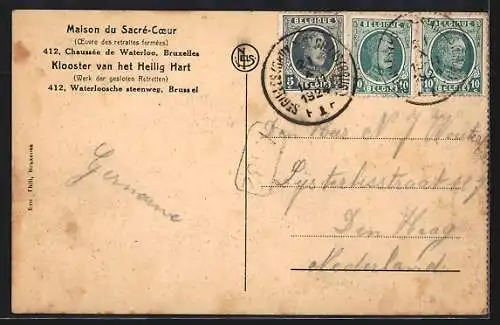 Maison du Sacré-Cœur
(Œuvre des retraites fermées)
412, Chaussée de Waterloo, Bruxelles
Klooster van het Heilig Hart
(Werk der gesloten Retretten)
412, Waterloosche steenweg, Brussel
Germaine
Ern. Thill, Bruxelles
BELGIQUE
5 5
BELGIË
BELGIQUE
10 10
BELGIË
BELGIQUE
10 10
BELGIË
1924
Den Haag
Nederland